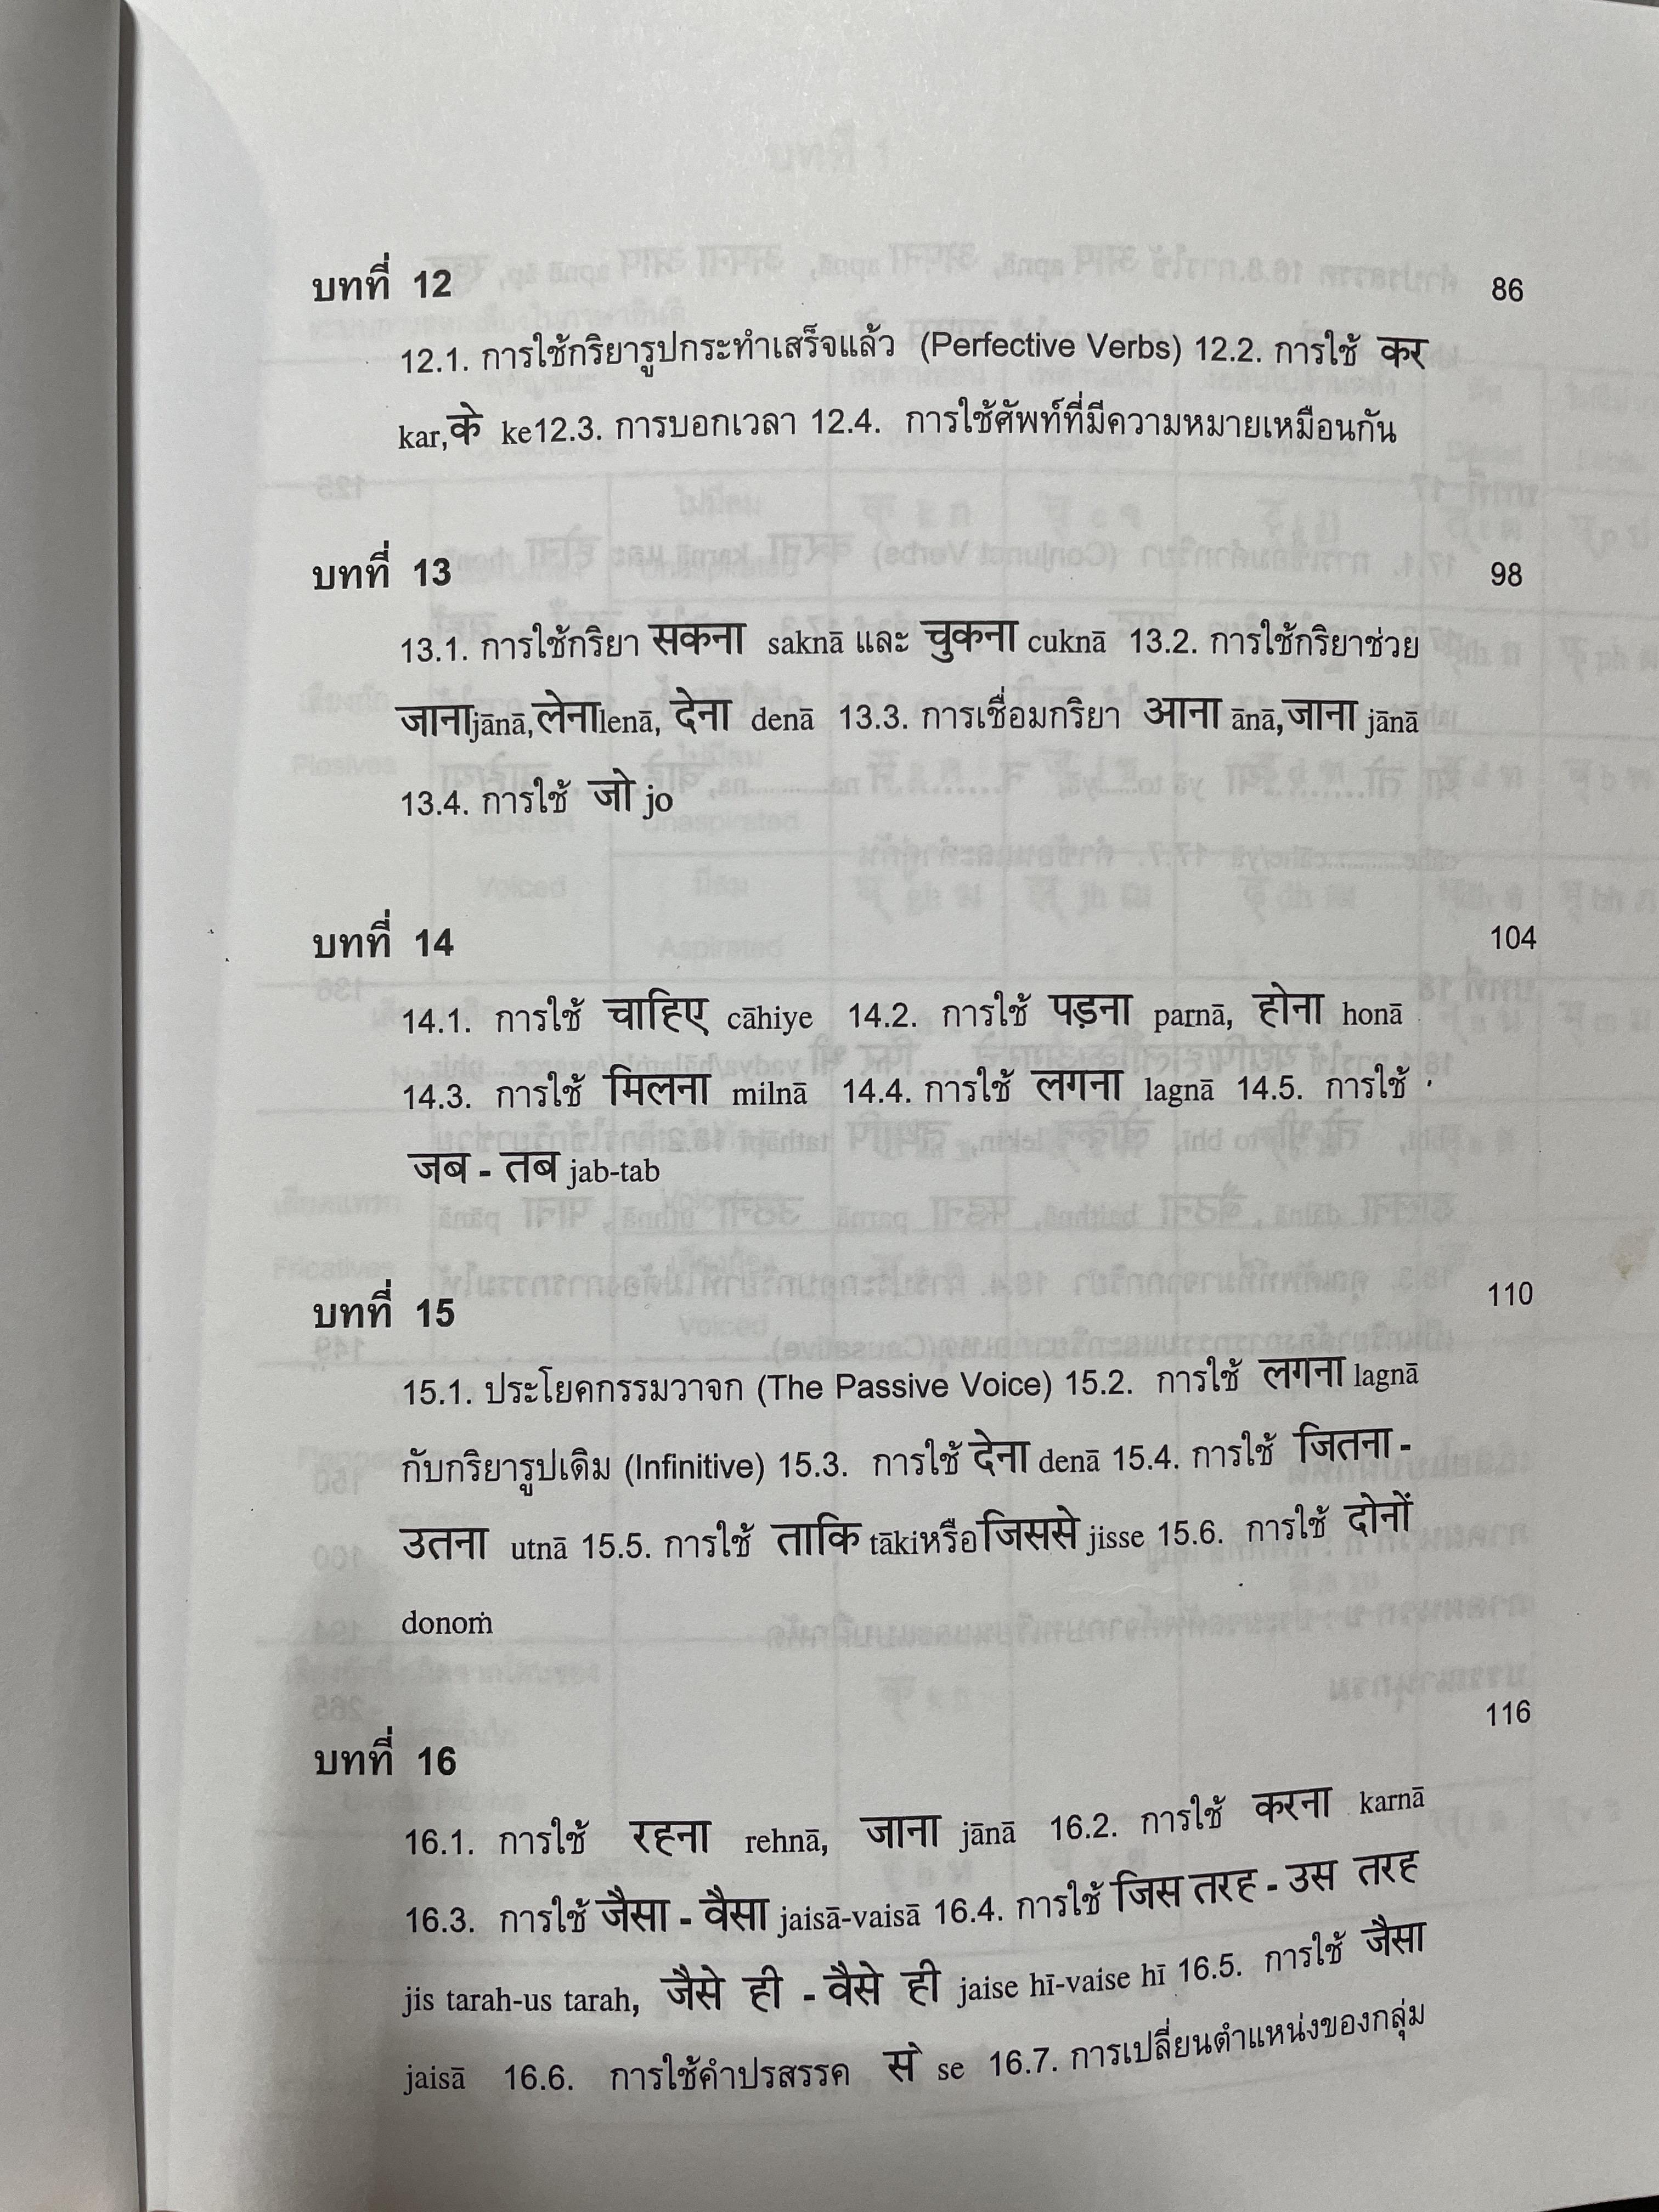 บทที่ 12 86
12.1. การใช้กริยารูปกระทำเสร็จแล้ว (Perfective Verbs) 12.2. การใช้ कर
kar,के ke12.3. การบอกเวลา 12.4. การใช้ศัพท์ที่มีความหมายเหมือนกัน
บทที่ 13 98
13.1. การใช้กริยา सकना saknā และ चुकना cuknā 13.2. การใช้กริยาช่วย
जानाjānā,लेनाlenā, देना denā 13.3. การเชื่อมกริยา आना ānā,जाना jānā
13.4. การใช้ जो jo
บทที่ 14 104
14.1. การใช้ चाहिए cāhiye 14.2. การใช้ पड़ना parnā, होना honā
14.3. การใช้ मिलना milnā 14.4. การใช้ लगना lagnā 14.5. การใช้
जब - तब jab-tab
บทที่ 15 110
15.1. ประโยคกรรมวาจก (The Passive Voice) 15.2. การใช้ लगना lagnā
กับกริยารูปเดิม (Infinitive) 15.3. การใช้ देना denā 15.4. การใช้ जितना -
उतना utnā 15.5. การใช้ ताकि tākiหรือजिससे jisse 15.6. การใช้ दोनों
donoṁ
บทที่ 16 116
16.1. การใช้ रहना rehnā, जाना jānā 16.2. การใช้ करना karnā
16.3. การใช้ जैसा - वैसा jaisā-vaisā 16.4. การใช้ जिस तरह - उस तरह
jis tarah-us tarah, जैसे ही - वैसे ही jaise hī-vaise hī 16.5. การใช้ जैसा
jaisā 16.6. การใช้คำปรสรรค से se 16.7. การเปลี่ยนตำแหน่งของกลุ่ม